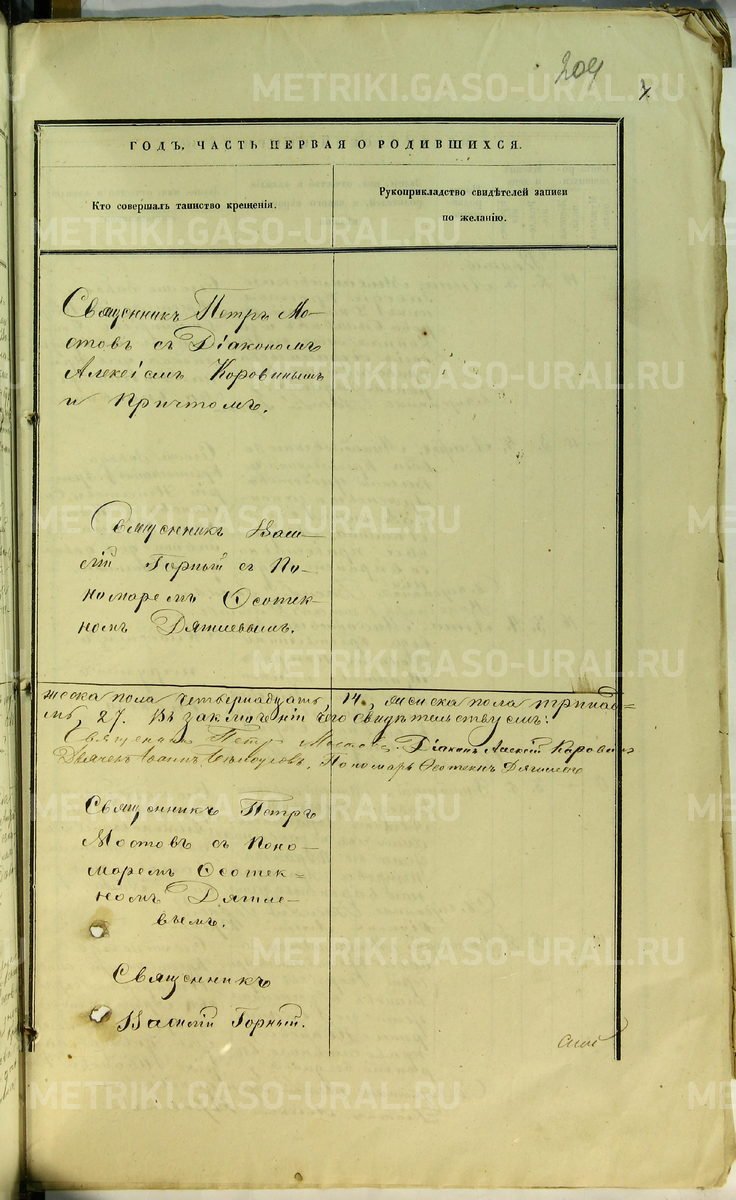 204
ГОДЪ, ЧАСТЬ ПЕРВАЯ О РОДИВШИХСЯ.
Кто совершалъ таинство крещенія.
Рукоприкладство свидѣтелей записи
по желанію.
Священникъ Петръ Мо-
стовъ съ Діакономъ
Алексіемъ Коровинымъ
и Причтомъ.
Священникъ Васи-
лій Горный съ По-
номаремъ Ѳеотек-
номъ Дягилевымъ.
жеска пола четвернадцать, 14, женска пола тринад-
ть, 27. Въ заключеніи чего свидѣтельствуемъ:
Священникъ Петръ Мостовъ. Діаконъ Алексій Коровинъ
Дьячекъ Іоаннъ Пономарь Ѳеотекнъ Дягилевъ
Священникъ Петръ
Мостовъ съ Поно-
маремъ Ѳеотек-
номъ Дягиле-
вымъ.
Священникъ
Василій Горный.
METRIKI.GASO-URAL.RU